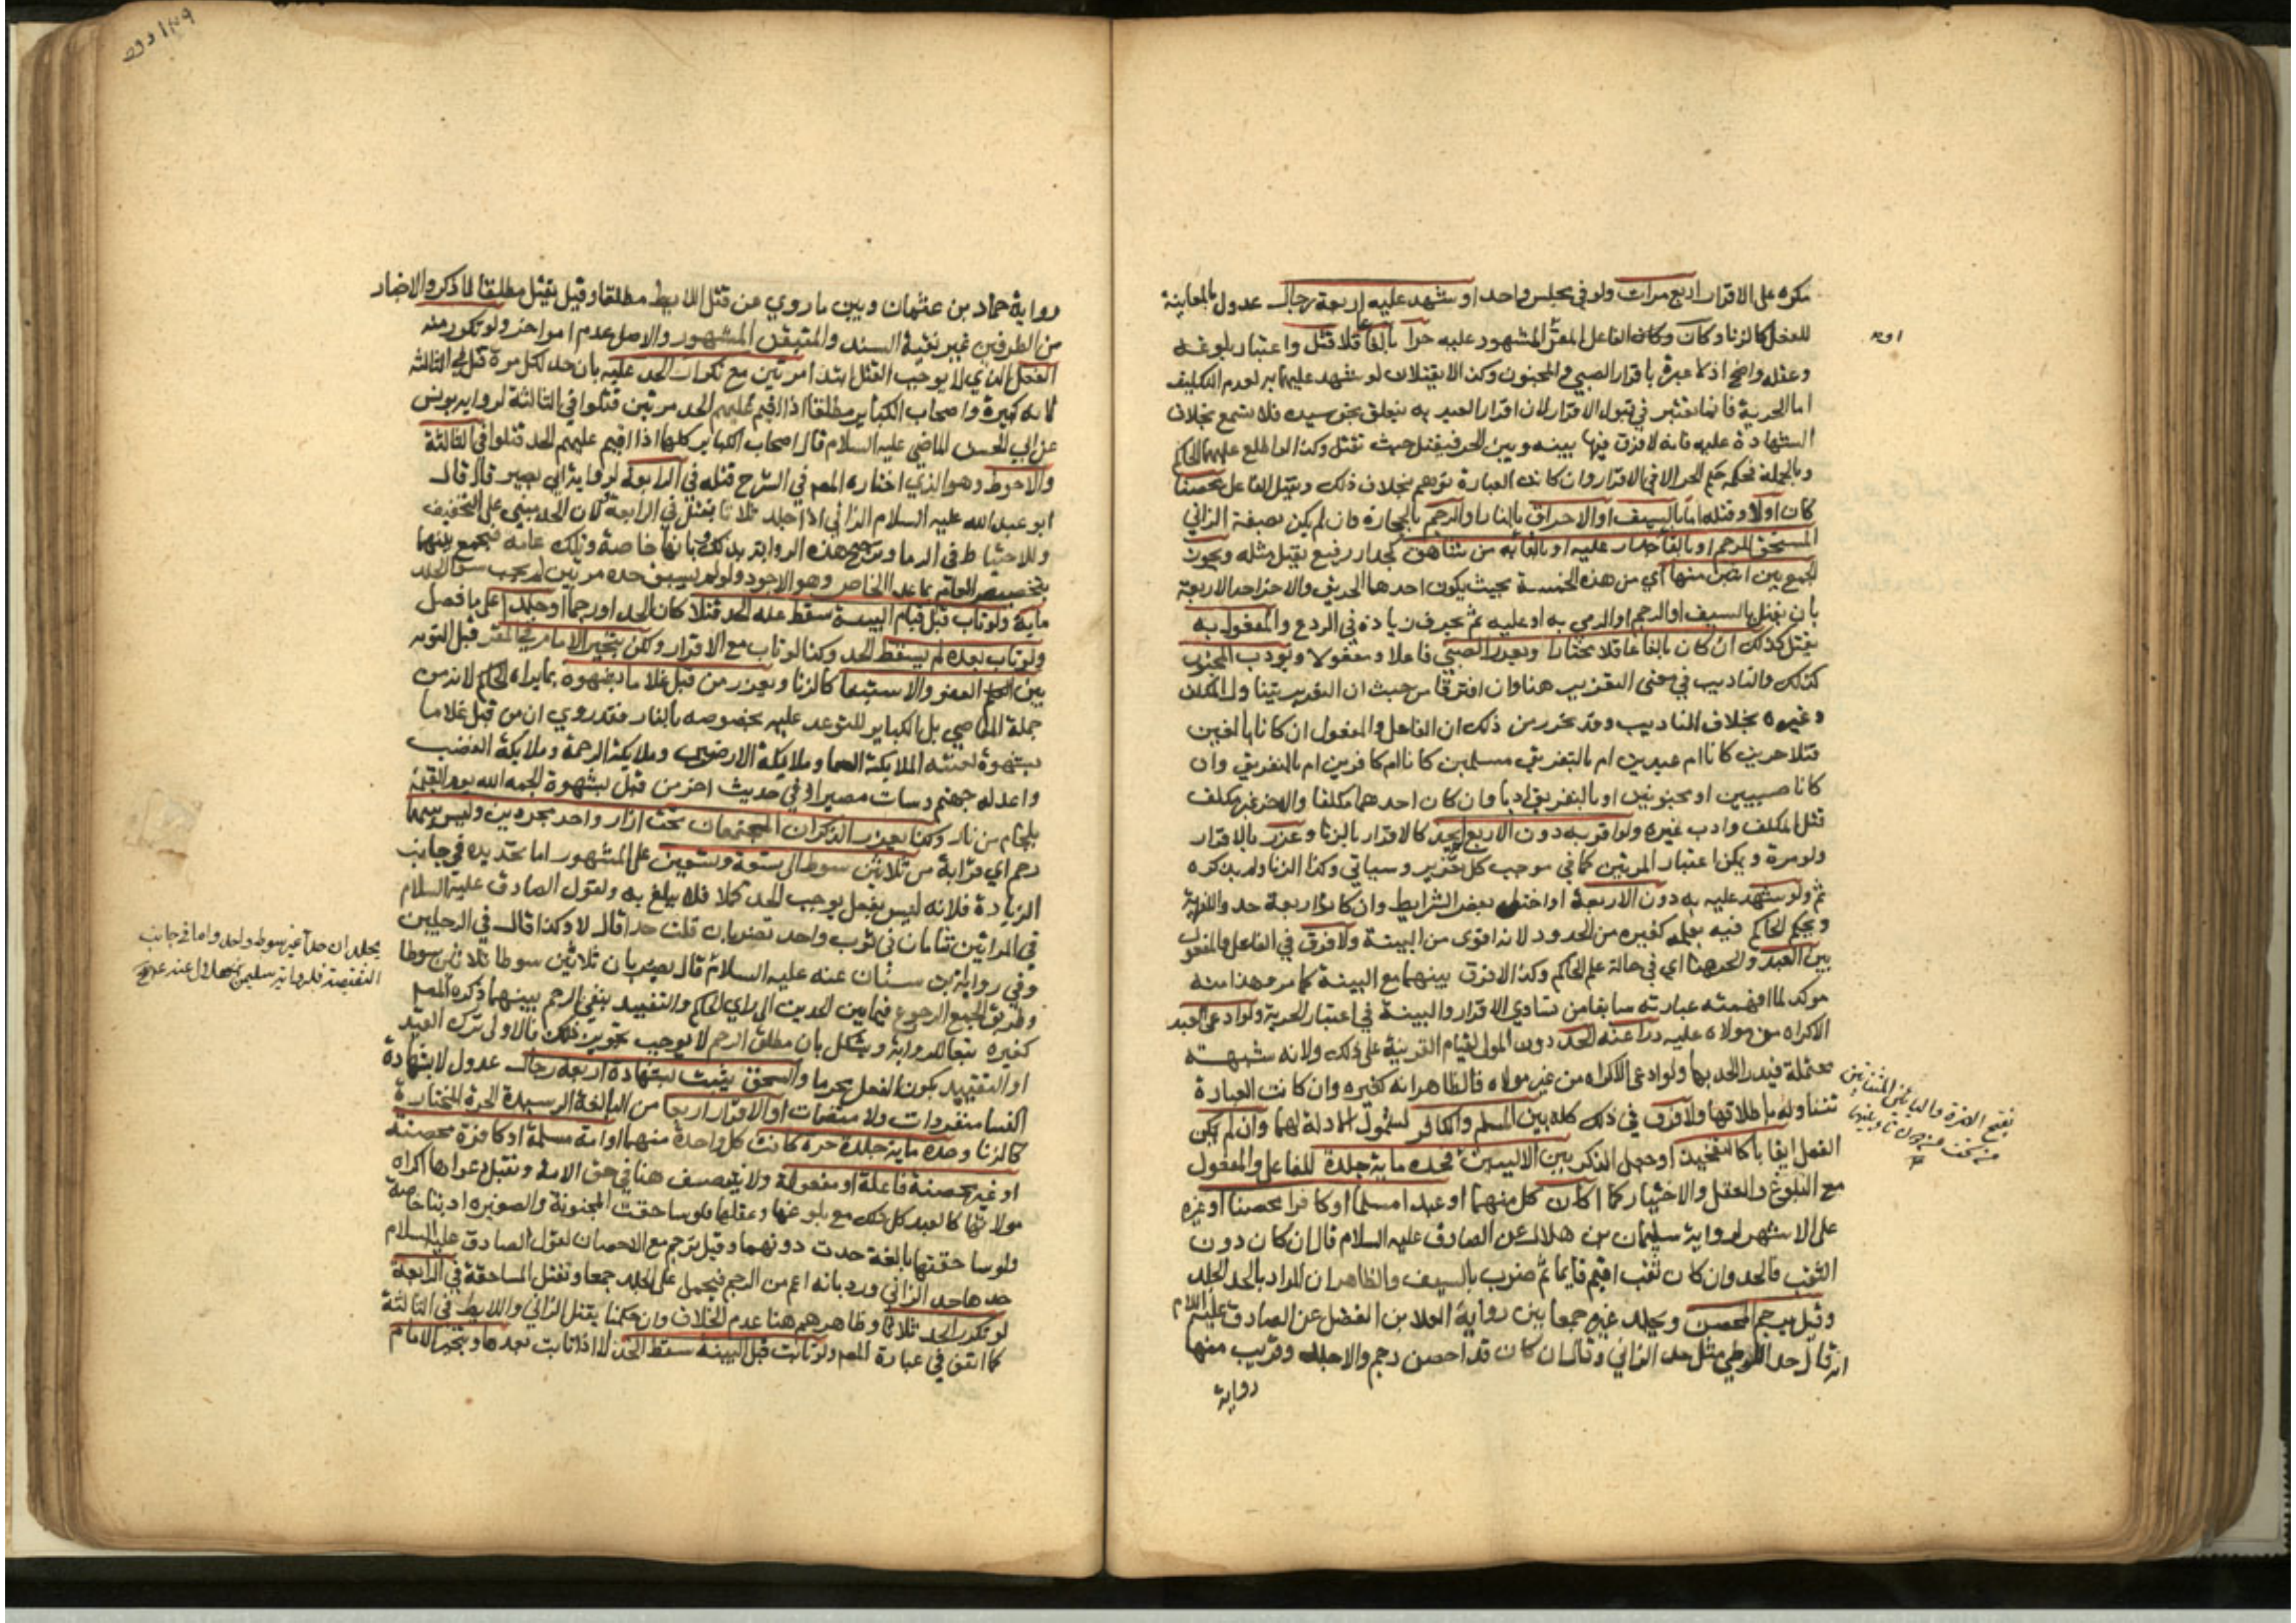 مكره على الاقرار اربع مرات ولو في مجلس واحد او شهد عليه اربعة رجال عدول بالمعاينة
للفعل كالزنا وكان الفاعل المقر او المشهود عليه حرا بالغا عاقلا قتل واعتبار بلوغه
وعقله واضح اذ لا عبرة باقرار الصبي والمجنون وكذا لا يقتلان لو شهد عليهما به لعدم التكليف
اما الحرية فانما تعتبر في قبول الاقرار لان اقرار العبد به يتعلق بحق سيده فلا يسمع بخلاف
الشهادة عليه فانه لا فرق فيها بينه وبين الحر فيقتل حيث تقتل وكذا لو اطلع عليهما الحاكم
وبالجملة فحكمه حكم الحر الا في الاقرار وان كانت العبارة توهم بخلاف ذلك ويقتل الفاعل محصنا
كان او لا وقتله اما بالسيف او الاحراق بالنار او الرجم بالحجارة وان لم يكن بصفة الزاني
المستحق للرجم او بالقاء جدار عليه او بالقائه من شاهق كجدار رفيع يقتل مثله ويجوز
الجمع بين اثنين منها اي من هذه الخمسة بحيث يكون احدهما الحريق والاخر احد الاربعة
بان يقتل بالسيف او الرجم او الرمي به او عليه ثم يحرق زيادة في الردع والمفعول به
يقتل كذلك ان كان بالغا عاقلا مختارا ويعزر الصبي فاعلا ومفعولا ويودب المجنون
كذلك والتاديب في معنى التعزير هنا وان افترقا من حيث ان التعزير يتناول المكلف
وغيره بخلاف التاديب وقد تحرر من ذلك ان الفاعل والمفعول ان كانا بالغين
قتلا حرين كانا ام عبدين ام بالتفريق مسلمين كانا ام كافرين ام بالتفريق وان
كانا صبيين او مجنونين او بالتفريق ادبا وان كان احدهما مكلفا والاخر غير مكلف
قتل المكلف وادب غيره ولو اقر به دون الاربع لم يحد كالاقرار بالزنا وعزر بالاقرار
ولو مرة ويمكن اعتبار المرتين كما في موجب كل تعزير وسياتي وكذا الزنا ولم يذكره
ثم ولو شهد عليه به دون الاربعة او اختل بعض الشرايط وان كانوا اربعة حدوا للفرية
ويحكم الحاكم فيه بعلمه كغيره من الحدود لانه اقوى من البينة ولا فرق في الفاعل والمفعول
بين العبد والحر هنا اي في حالة علم الحاكم وكذا لا فرق بينهما مع البينة كما مر وهذا منه
موكد لما افهمته عبارته سابقا من تساوي الاقرار والبينة في اعتبار الحرية ولو ادعى العبد
الاكراه من مولاه عليه درا عنه الحد دون المولى لقيام القرينة على ذلك ولانه شبهة
محتملة فيدرا الحد بها ولو ادعى الاكراه من غير مولاه فالظاهر انه كغيره وان كانت العبارة
تتناوله باطلاقها ولا فرق في ذلك كله بين المسلم والكافر لشمول الادلة لهما وان لم يكن
الفعل ايقابا كالتفخيذ او جعل الذكر بين الاليين فحده ماية جلدة للفاعل والمفعول
مع البلوغ والعقل والاختيار كما كان كل منهما او عبدا مسلما او كافرا محصنا او غيره
على الاشهر لرواية سليمان بن هلال عن الصادق عليه السلام قال ان كان دون
الثقب فالحد وان كان ثقب اقيم قايما ثم ضرب بالسيف والظاهر ان المراد بالحد الجلد
وقيل يرجم المحصن ويجلد غيره جمعا بين رواية العلا بن الفضل عن الصادق عليه السلام
انه قال حد اللوطي مثل حد الزاني وقال ان كان قد احصن رجم والا جلد وقريب منها
رواية
بفتح الهمزة والياءين المثناتين
من تحت من دون تاء بينهما
رواية حماد بن عثمان وبين ما روي من قتل اللايط مطلقا وقيل يقتل مطلقا لما ذكر والاخبار
من الطرفين غير نقية السند والمتيقن المشهور والاصل عدم امر اخر ولو تكرر منه
الفعل الذي لا يوجب القتل ابتدا مرتين مع تكرار الحد عليه بان حد لكل مرة قتل في الثالثة
لانه كبيرة واصحاب الكباير مطلقا اذا اقيم عليهم الحد مرتين قتلوا في الثالثة لرواية يونس
عن ابي الحسن الماضي عليه السلام قال اصحاب الكباير كلها اذا اقيم عليهم الحد قتلوا في الثالثة
والاحوط وهو الذي اختاره المصـ في الشرح قتله في الرابعة لرواية ابي بصير قال قال
ابو عبد الله عليه السلام الزاني اذا جلد ثلاثا يقتل في الرابعة لان الحد مبني على التخفيف
وللاحتياط في الدما وترجح هذه الرواية بذلك وبانها خاصة وتلك عامة فيجمع بينهما
بتخصيص العام بما عدا الخاص وهو الاجود ولو لم يسبق حده مرتين لم يجب سوى الجلد
ماية ولو تاب قبل قيام البينة سقط عنه الحد قتلا كان الحد او رجما او جلدا على ما فصل
ولو تاب بعده لم يسقط الحد وكذا لو تاب مع الاقرار ولكن يتخير الامام في المقر قبل التوبة
بين العفو والاستيفا كالزنا ويعزر من قبل غلاما بشهوة بما يراه الحاكم لانه من
جملة المعاصي بل الكباير للتوعد عليه بخصوصه بالنار فقد روي ان من قبل غلاما
بشهوة لعنته الملايكة السما وملايكة الارضين وملايكة الرحمة وملايكة الغضب
واعد له جهنم وسات مصيرا وفي حديث اخر من قبل بشهوة الجمه الله يوم القيمة
بلجام من نار وكذا يعزر الذكران المجتمعان تحت ازار واحد مجردين وليس بينهما
رحم اي قرابة من ثلاثين سوطا الى تسعة وتسعين على المشهور اما تحديده في جانب
الزيادة فلانه ليس بفعل يوجب الحد كملا فلا يبلغ به ولقول الصادق عليه السلام
في المراتين تنامان في ثوب واحد تضربان قلت حدا قال لا وكذا قال في الرجلين
وفي رواية بن سنان عنه عليه السلام قال يضربان ثلاثين سوطا ثلاثين سوطا
وطريق الجمع الرجوع فيما بين الحدين الى راي الحاكم والتقييد بنفي الرحم بينهما ذكره المصـ
كغيره تبعا للرواية ويشكل بان مطلق الرحم لا يوجب تجويز ذلك فالاولى ترك القيد
او التقييد بكون الفعل محرما والسحق يثبت بشهادة اربعة رجال عدول لا بشهادة
النسا منفردات ولا منضمات او الاقرار اربعا من البالغة الرشيدة الحرة المختارة
كالزنا وحده ماية جلدة حرة كانت كل واحدة منهما او امة مسلمة او كافرة محصنة
او غير محصنة فاعلة او مفعولة ولا يتنصف هنا في حق الامة وتقبل دعواها اكراه
مولاتها كالعبد كل ذلك مع بلوغها وعقلها فلو ساحقت المجنونة والصغيرة ادبتا خاصة
ولو ساحقتها بالغة حدت دونهما وقيل ترجم مع الاحصان لقول الصادق عليه السلام
حدها حد الزاني ورد بانه اعم من الرجم فيحمل على الجلد جمعا وتقتل المساحقة في الرابعة
لو تكرر الحد ثلاثا وظاهرهم هنا عدم الخلاف وان حكمنا بقتل الزاني واللايط في الثالثة
كما اتفق في عبارة المصـ ولو تابت قبل البينة سقط الحد لا اذا تابت بعدها ويتخير الامام
يجلدان حدا غير سوط واحد واما في جانب
النقيصة فلرواية سليمان بن هلال عنه عليه السلام